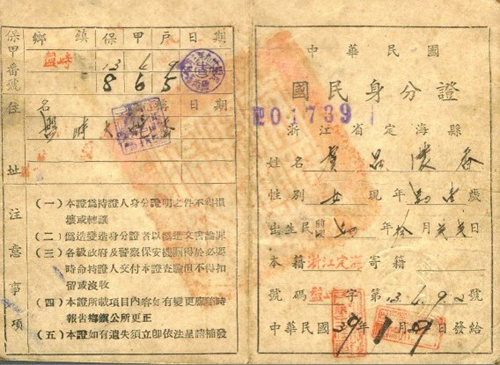 保甲番號
鄉鎮 保 甲 戶 日期
盤峙 13 6 9
8 6 5
住址
日期
注意事項
(一)本證為持證人身分證明之件不得損
壞或轉讓
(二)偽造變造身分證者以偽造文書論罪
(三)各級政府及警察保安機關得於必要
時命持證人交付本證查驗但不得扣
留或沒收
(四)本證所載項目內容如有變更應隨時
報告鄉鎮公所更正
(五)本證如有遺失須立即依法呈請補發
中華民國
國民身分證
01739
浙江省定海縣
姓名
性別 女 現年 歲
出生民國 年 拾月 日
本籍 浙江定海 寄籍
號碼 盤 字第 13.6.9.2 號
中華民國 39年1月9日發給